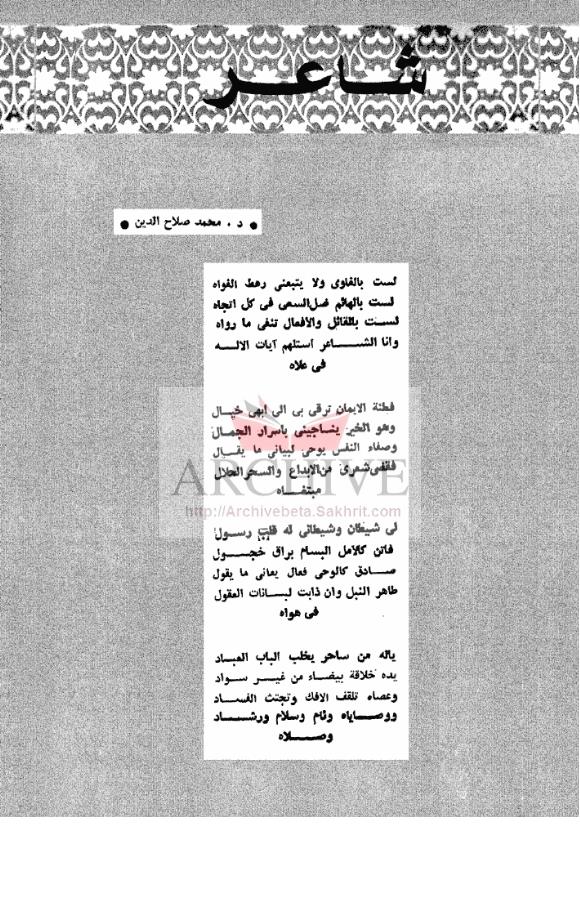 شاعر
● د . محمد صلاح الدين ●
لست بالغاوى ولا يتبعنى رهط الغواه
لست بالهائم ضل السعى فى كل اتجاه
لست بالقائل والافعال تنفى ما رواه
وانا الشاعر استلهم آيات الاله
فى علاه
فطنة الايمان ترقى بى الى ابهى خيال
وهو الخير يناجينى باسرار الجمال
وصفاء النفس يوحى لبيانى ما يقال
فقفى شعرى من الابداع والسحر الحلال
مبتغاه
لى شيطان وشيطانى له قلب رسول
فاتن كالامل البسام براق خجول
صادق كالوحى فعال يعانى ما يقول
طاهر النبل وان ذابت لبسانات العقول
فى هواه
ياله من ساحر يخلب الباب العباد
يده خلاقة بيضاء من غير سواد
وعصاه تلقف الافك وتجتث الفساد
ووصاياه وئام وسلام ورشاد
وصلاه
ARCHIVE
http://Archivebeta.Sakhrit.com